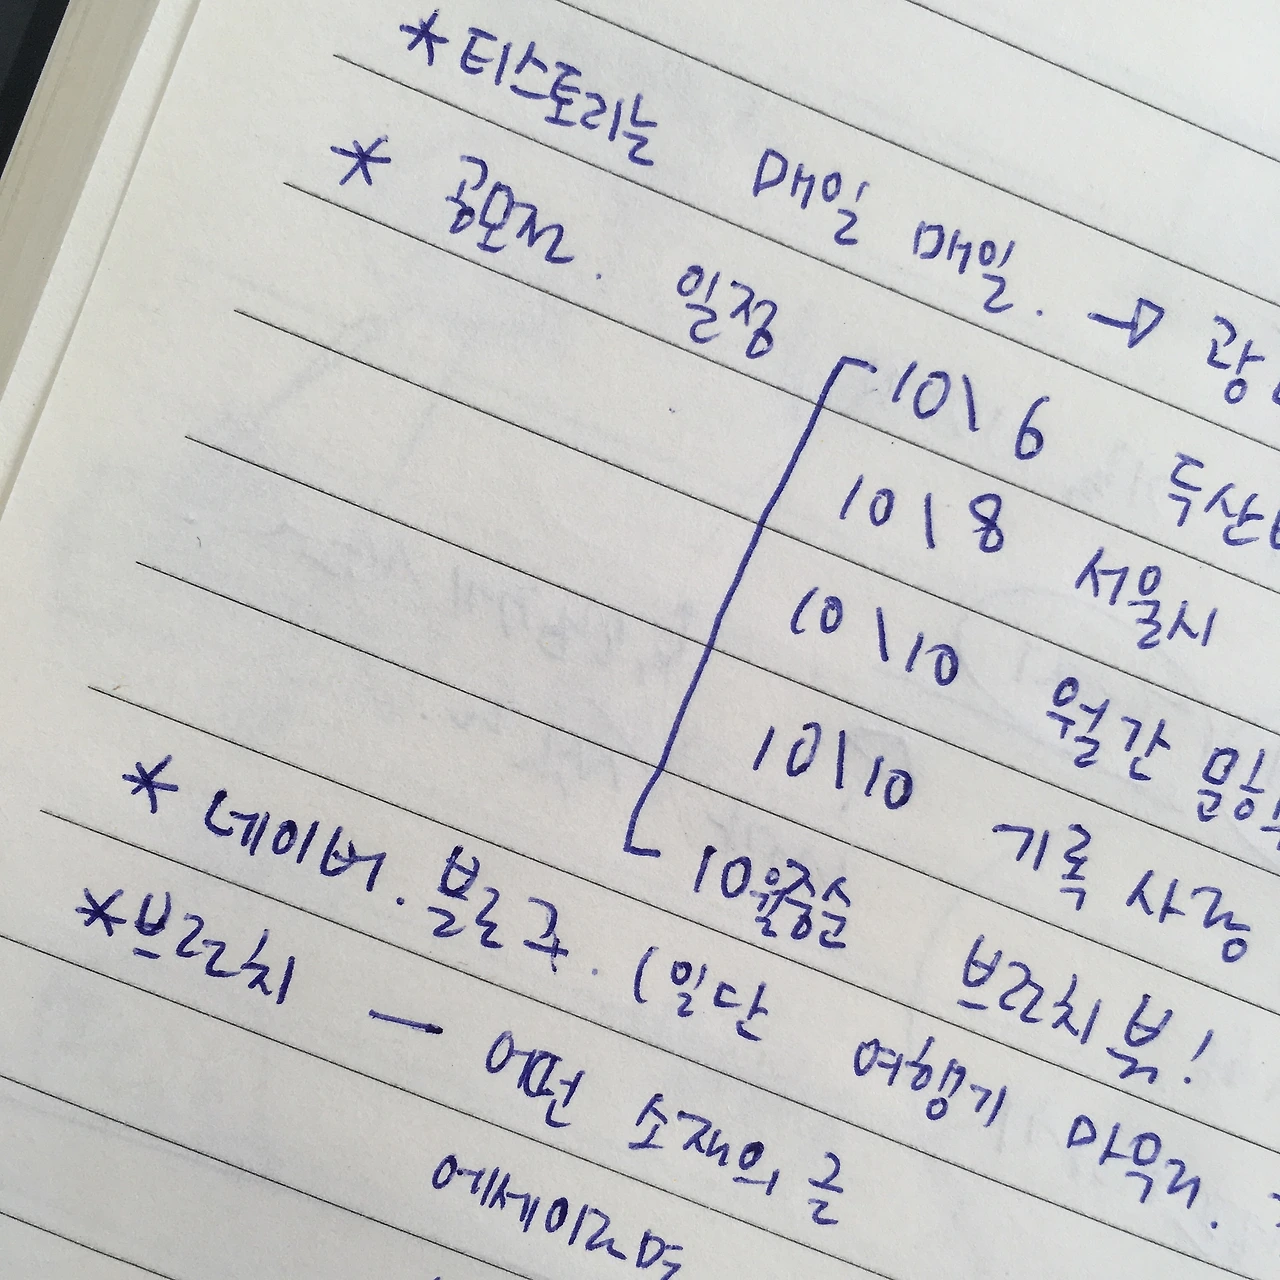 *티스토리는 매일 매일. → 광
* 공모전. 일정
10\6 두산
10\8 서울시
10\10 월간
10\10 기록 사랑
10월중순 브런치 북!
* 네이버. 블로그. (일단 여행기 마무리.
*브런치 — 어떤 소재의 글
에세이라면